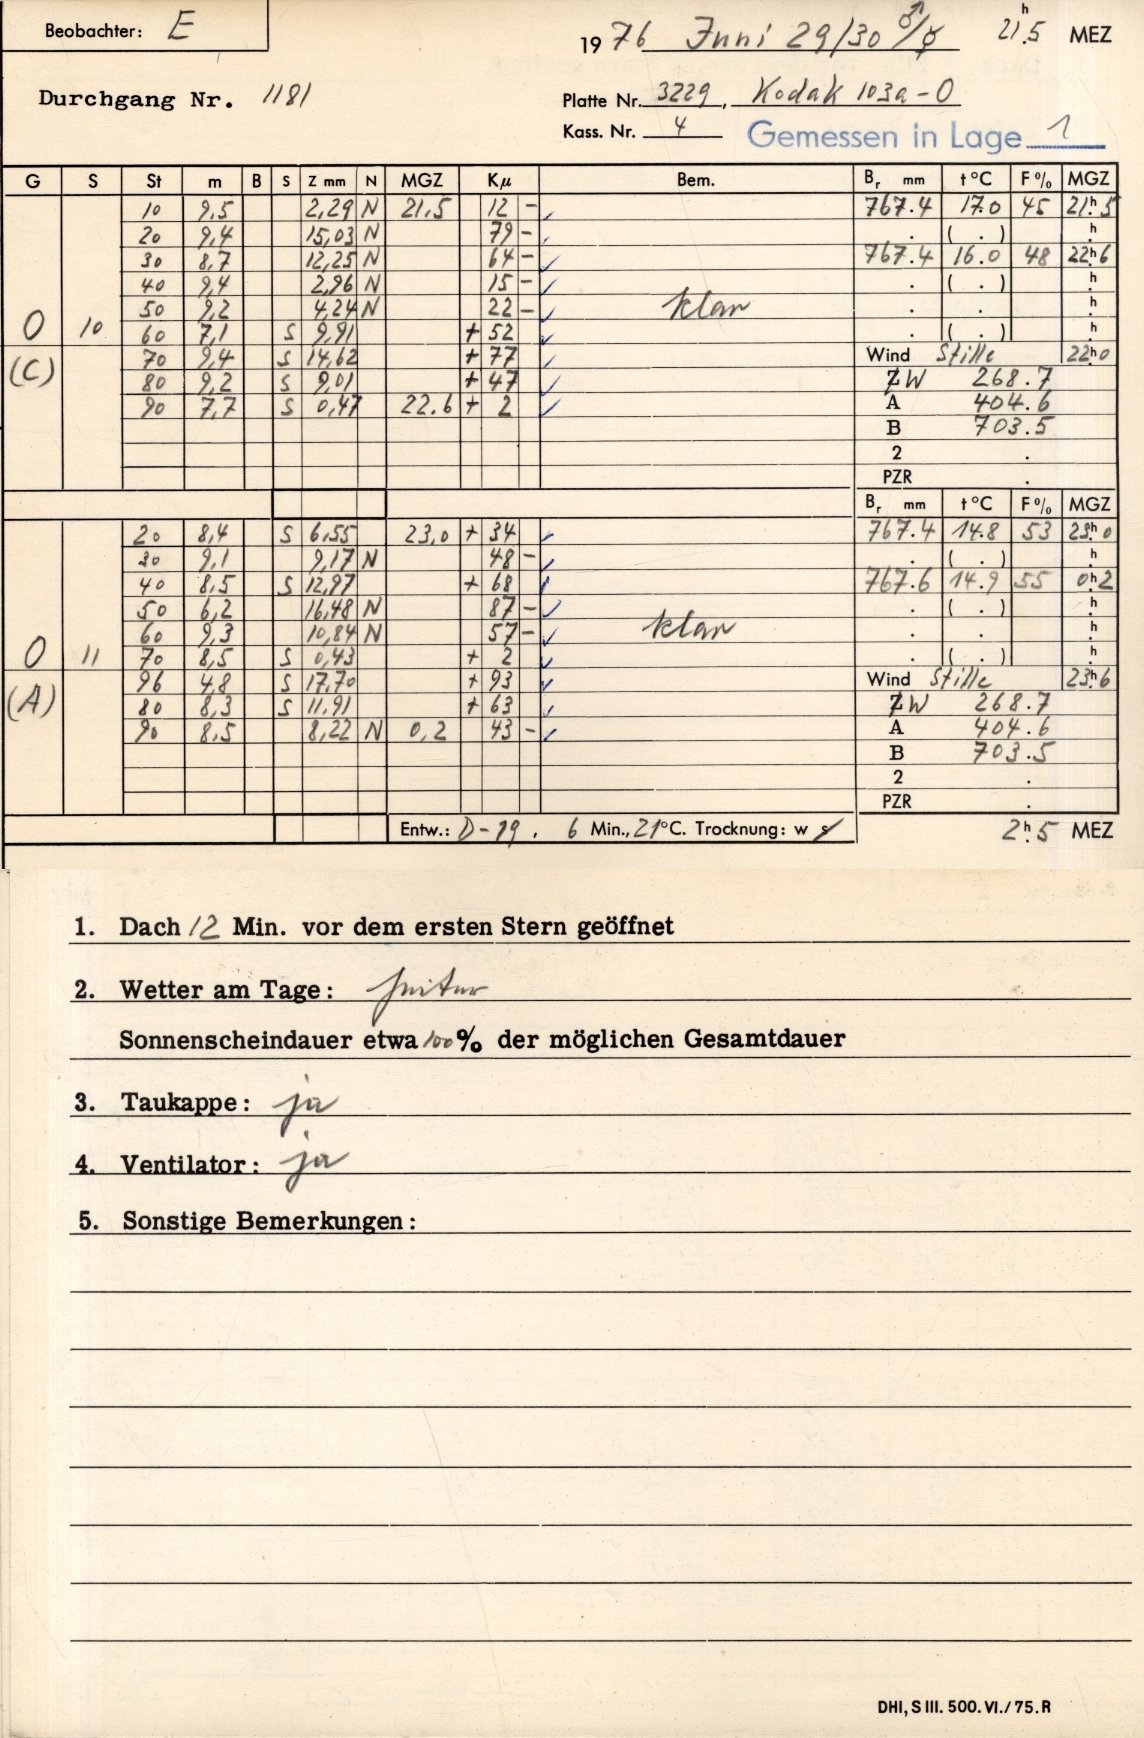 Beobachter: E
1976 Juni 29/30 ♂/☿ 21h.5 MEZ
Durchgang Nr. 1181
Platte Nr. 3229, Kodak 103a-O
Kass. Nr. 4 Gemessen in Lage 1
G S St m B S Z mm N MGZ Kμ Bem. Br mm t °C F % MGZ
10 9,5 2,29 N 21,5 12 - ✓ 767.4 17.0 45 21h.5
20 9,4 15,03 N 79 - ✓ . ( . ) h
30 8,7 12,25 N 64 - ✓ 767.4 16.0 48 22h.6
40 9,4 2,96 N 15 - ✓ . ( . ) h
50 9,2 4,24 N 22 - ✓ klar . . h
O 10 60 7,1 S 9,91 + 52 ✓ . ( . ) h
(C) 70 9,4 S 14,62 + 77 ✓ Wind Stille 22h0
80 9,2 S 9,01 + 47 ✓ ZW 268.7
90 7,7 S 0,47 22.6 + 2 ✓ A 404.6
B 703.5
2 .
PZR .
Br mm t °C F % MGZ
20 8,4 S 6,55 23,0 + 34 ✓ 767.4 14.8 53 23h.0
30 9,1 9,17 N 48 - ✓ . ( . ) h
40 8,5 S 12,97 + 68 ✓ 767.6 14.9 55 0h.2
50 6,2 16,48 N 87 - ✓ . ( . ) h
60 9,3 10,84 N 57 - ✓ klar . . h
O 11 70 8,5 S 0,43 + 2 ✓ . ( . ) h
(A) 96 4,8 S 17,70 + 93 ✓ Wind Stille 23h.6
80 8,3 S 11,91 + 63 ✓ ZW 268.7
90 8,5 8,22 N 0,2 43 - ✓ A 404.6
B 703.5
2 .
PZR .
Entw.: D-19, 6 Min., 21°C. Trocknung: w s 2h.5 MEZ
1. Dach 12 Min. vor dem ersten Stern geöffnet
2. Wetter am Tage: heiter
Sonnenscheindauer etwa 100% der möglichen Gesamtdauer
3. Taukappe: ja
4. Ventilator: ja
5. Sonstige Bemerkungen:
DHI, S III. 500. VI./75. R